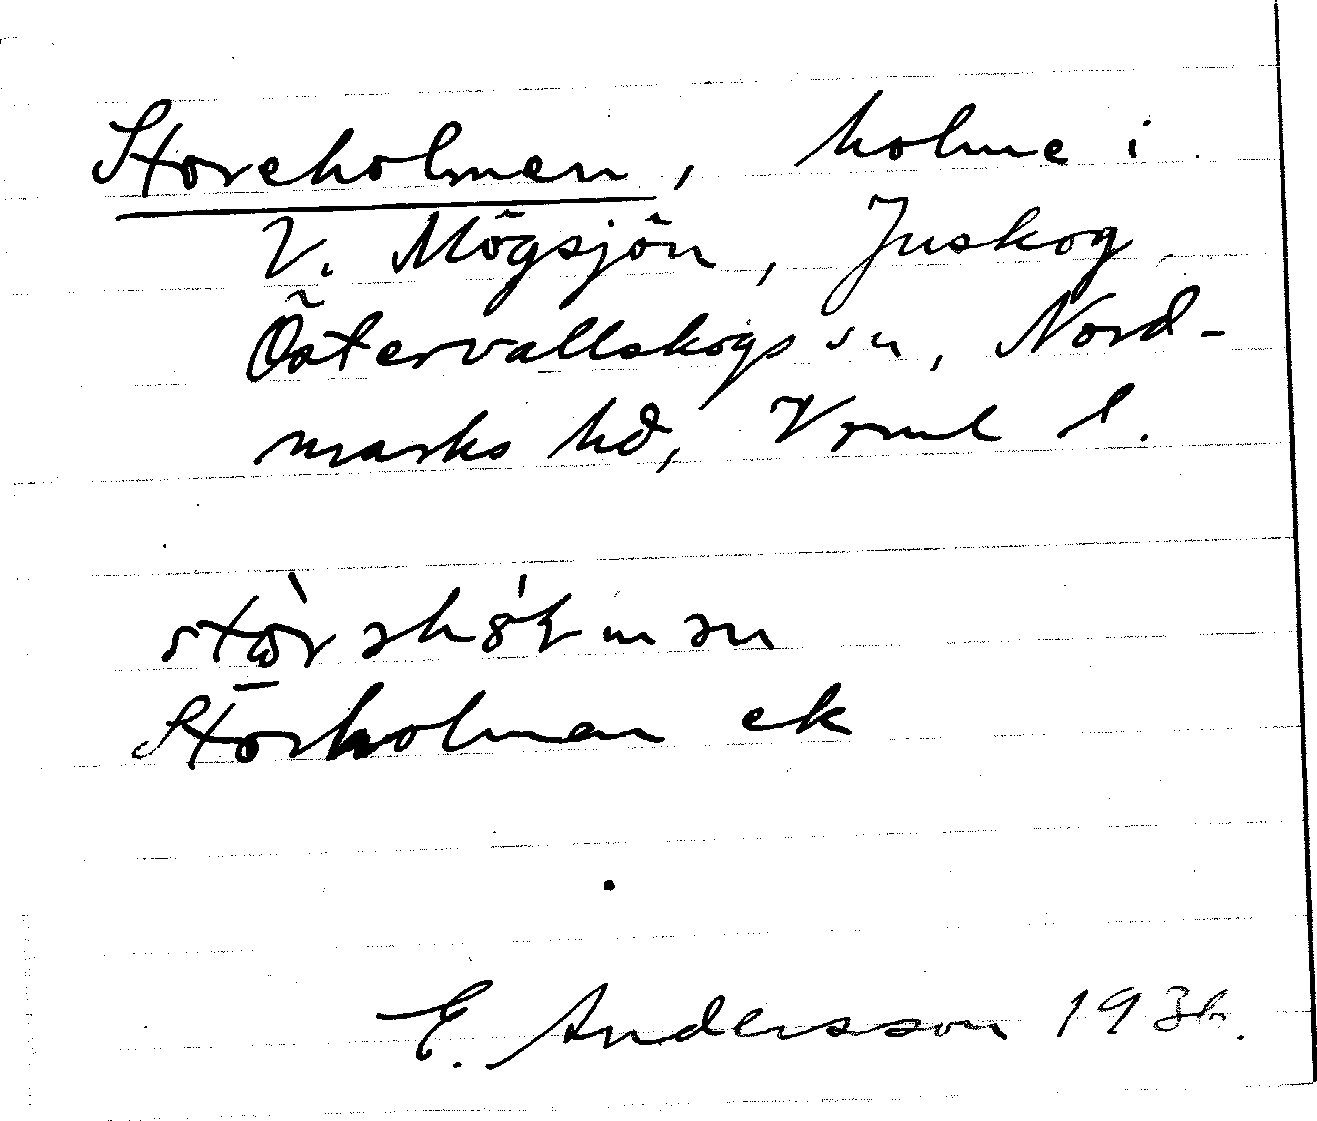 Storeholmen, holme i
V. Mögsjön, Juskog
Östervallskogs sn, Nord-
marks hd, Vrml l.
Storholmen ek
E. Andersson 193